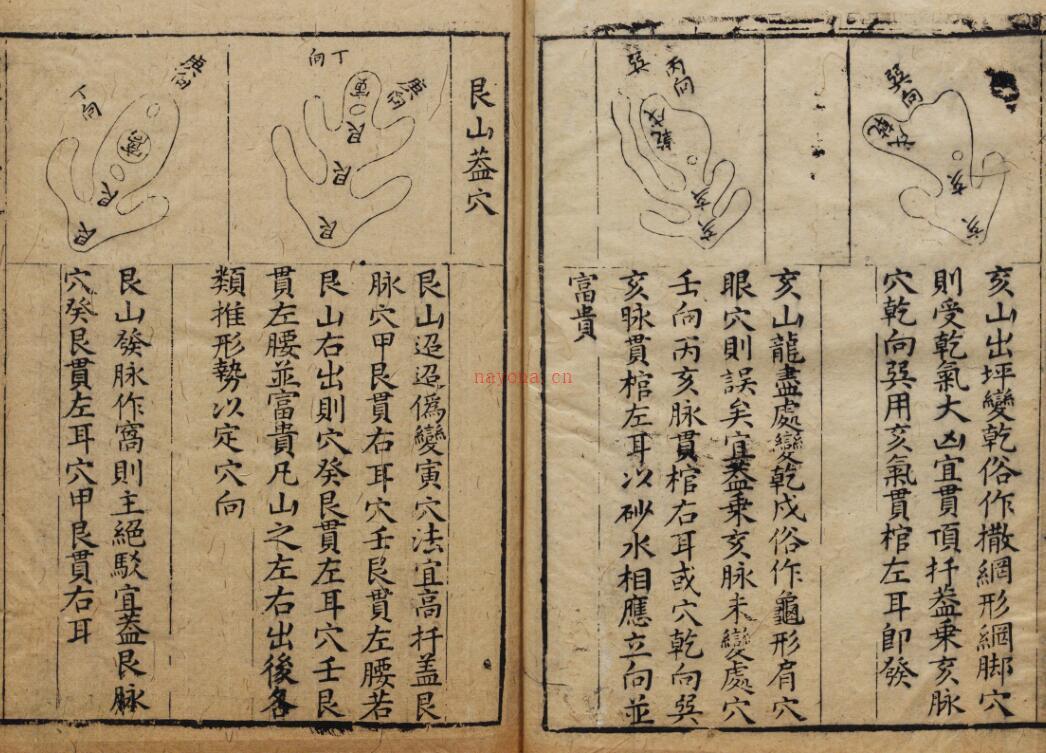 巽向
乾
亥
亥
亥山出坪變乾俗作撒網形網脚穴
則受乾氣大凶宜貫頂扦葢乗亥脉
穴乾向巽用亥氣貫棺左耳即發
丙向
巽
乾戌
亥
亥
亥山龍盡處變乾戌俗作龜形肩穴
眼穴則誤矣宜葢乗亥脉未變處穴
壬向丙亥脉貫棺右耳或穴乾向巽
亥脉貫棺左耳以砂水相應立向並
富貴
艮山葢穴
庚向
丁向
寅
艮
艮
艮
艮山迢迢僞變寅穴法宜高扦盖艮
脉穴甲艮貫右耳穴壬艮貫左腰若
艮山右出則穴癸艮貫左耳穴壬艮
貫左腰並富貴凡山之左右出後各
類推形勢以定穴向
庚向
丁向
艮
艮
艮山發脉作窩則主絕駁宜葢艮脉
穴癸艮貫左耳穴甲艮貫右耳
nayona.cn